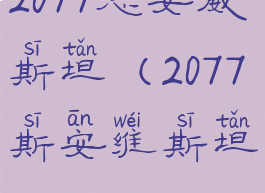 2077思安威
sī tǎn
斯坦(2077
sī ān wéi sī tǎn
斯安维斯坦